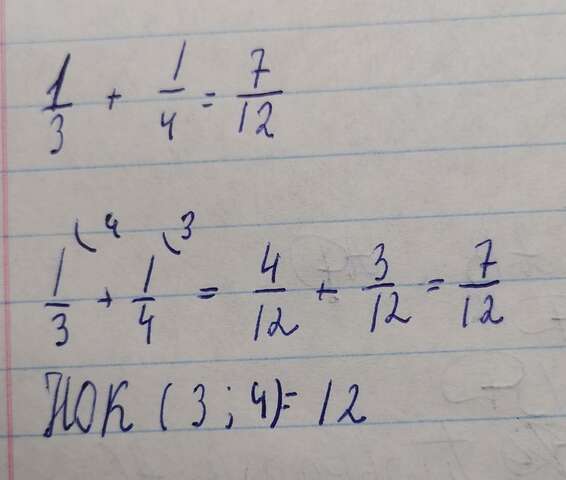 1/3 + 1/4 = 7/12
1/3 ⁴ + 1/4 ³ = 4/12 + 3/12 = 7/12
НОК (3; 4) = 12